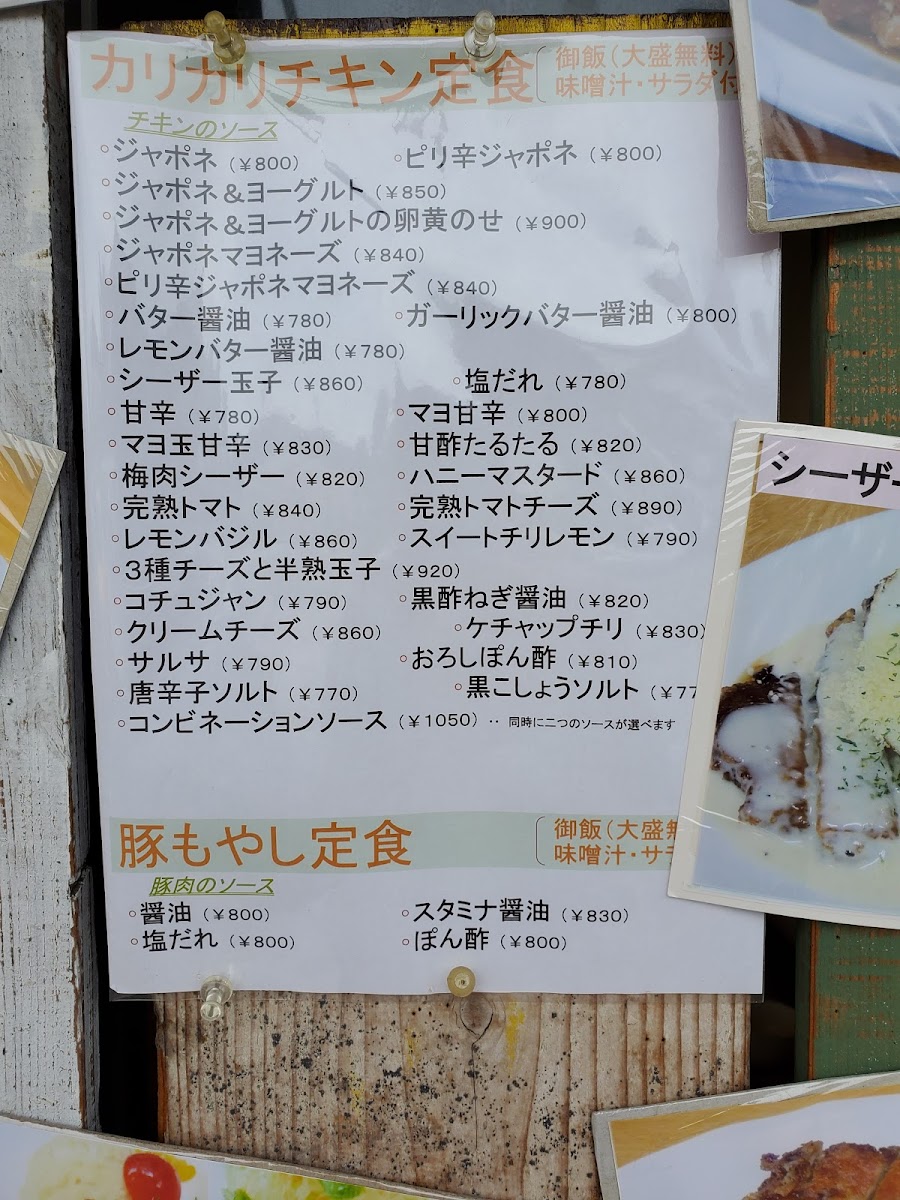 カリカリチキン定食 御飯(大盛無料)
味噌汁・サラダ付
チキンのソース
◦ジャポネ(￥800) ◦ピリ辛ジャポネ(￥800)
◦ジャポネ&ヨーグルト(￥850)
◦ジャポネ&ヨーグルトの卵黄のせ(￥900)
◦ジャポネマヨネーズ(￥840)
◦ピリ辛ジャポネマヨネーズ(￥840)
◦バター醤油(￥780) ◦ガーリックバター醤油(￥800)
◦レモンバター醤油(￥780)
◦シーザー玉子(￥860) ◦塩だれ(￥780)
◦甘辛(￥780) ◦マヨ甘辛(￥800)
◦マヨ玉甘辛(￥830) ◦甘酢たるたる(￥820)
◦梅肉シーザー(￥820) ◦ハニーマスタード(￥860)
◦完熟トマト(￥840) ◦完熟トマトチーズ(￥890)
◦レモンバジル(￥860) ◦スイートチリレモン(￥790)
◦3種チーズと半熟玉子(￥920)
◦コチュジャン(￥790) ◦黒酢ねぎ醤油(￥820)
◦クリームチーズ(￥860) ◦ケチャップチリ(￥830)
◦サルサ(￥790) ◦おろしぽん酢(￥810)
◦唐辛子ソルト(￥770) ◦黒こしょうソルト(￥77
◦コンビネーションソース(￥1050)‥ 同時に二つのソースが選べます
豚もやし定食 御飯(大盛無
味噌汁・サラ
豚肉のソース
◦醤油(￥800) ◦スタミナ醤油(￥830)
◦塩だれ(￥800) ◦ぽん酢(￥800)
シーザー